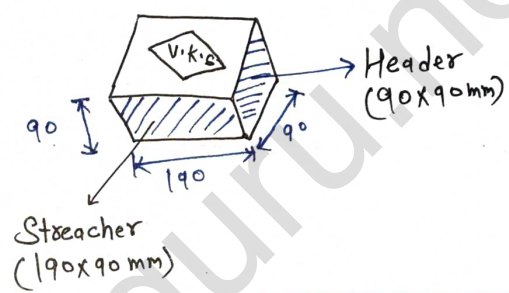 V.K.S
Header
(90x90mm)
90
90
190
Streacher
(190x90 mm)